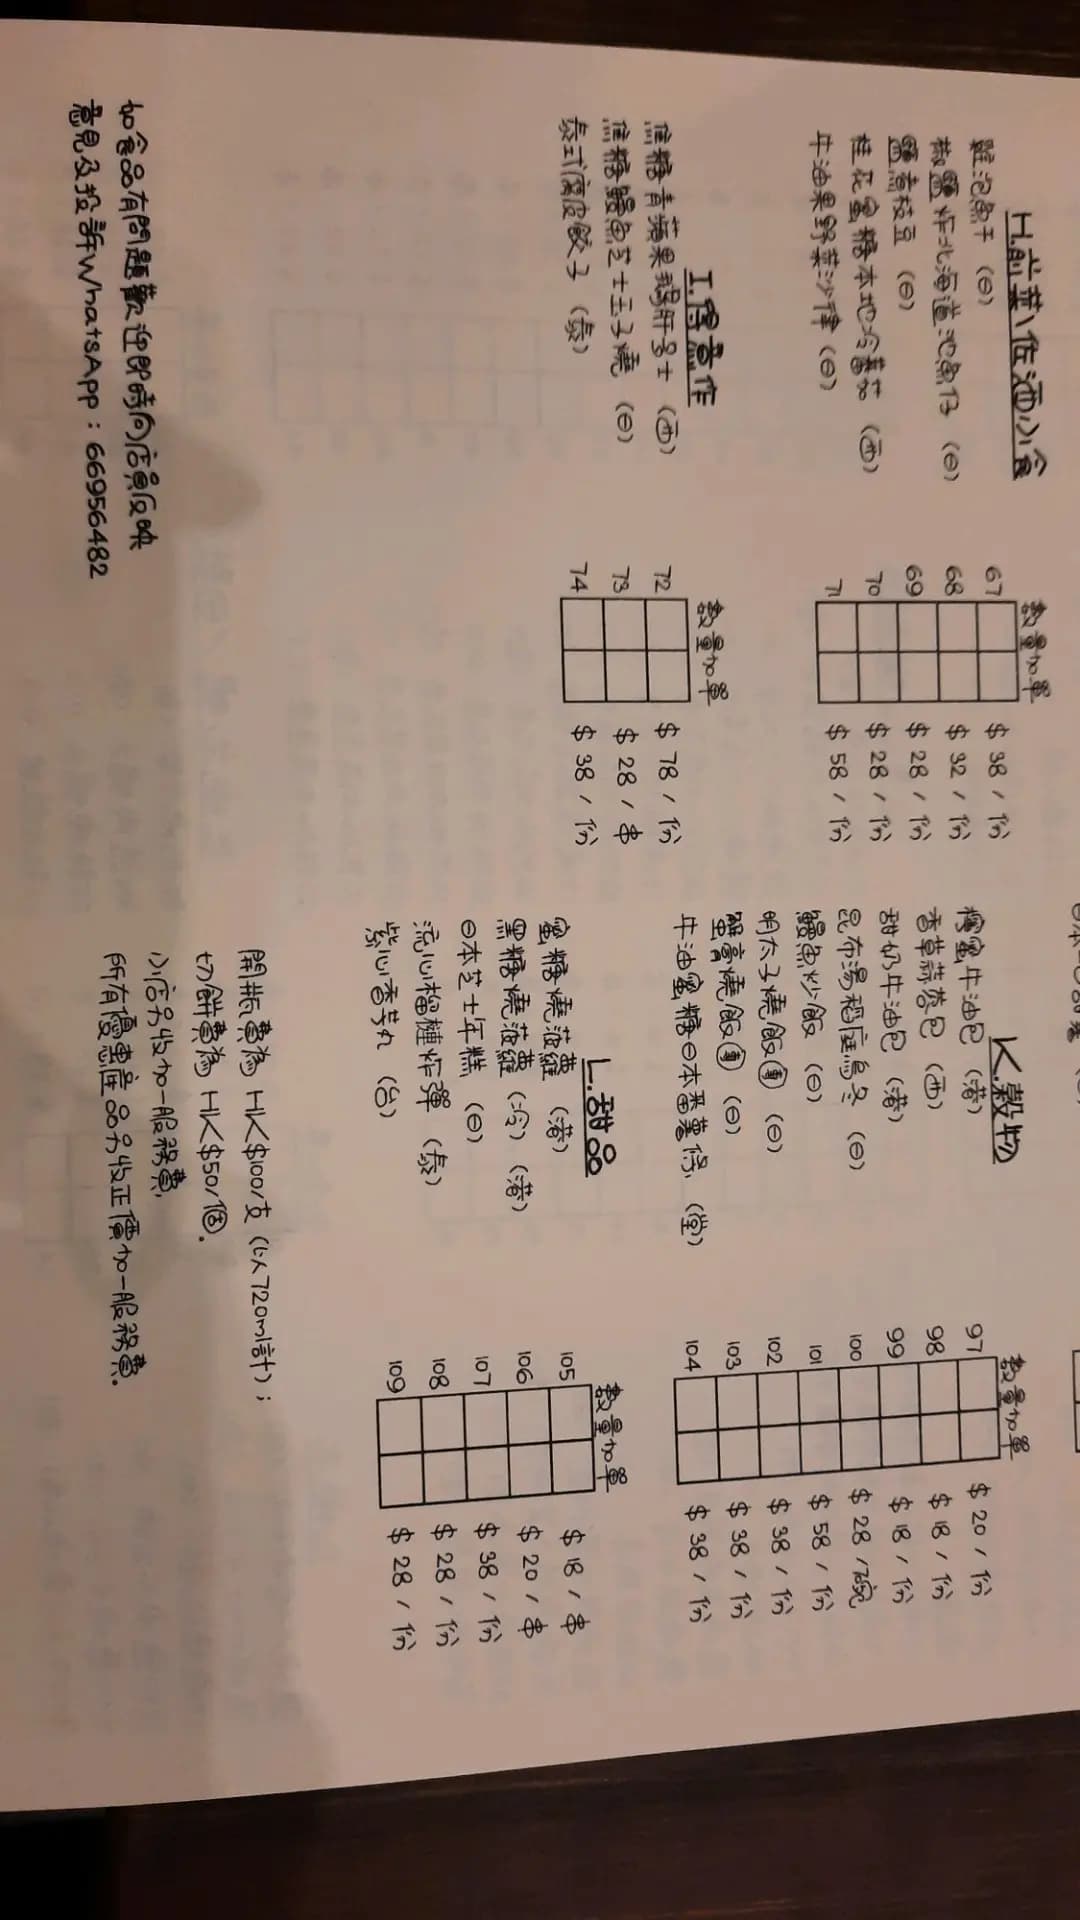 H.前菜\佐酒小食
數量加單
雞泡魚干 (日) 67 $ 38 / 份
椒鹽炸北海道池魚仔 (日) 68 $ 32 / 份
鹽燒枝豆 (日) 69 $ 28 / 份
桂花蜜糖本地冷蕃茄 (西) 70 $ 28 / 份
牛油果野菜沙律 (日) 71 $ 58 / 份
I.得意作
數量加單
焦糖青蘋果鵝肝多士 (西) 72 $ 78 / 份
焦糖鰻魚芝士玉子燒 (日) 73 $ 28 / 串
泰式腐皮餃子 (泰) 74 $ 38 / 份
如食品有問題歡迎即時向店員反映
意見及投訴WhatsApp : 66956482
K.穀物
數量加單
檸蜜牛油包 (港) 97 $ 20 / 份
香草蒜蓉包 (西) 98 $ 18 / 份
甜奶牛油包 (港) 99 $ 18 / 份
昆布湯稻庭烏冬 (日) 100 $ 28 / 碗
鰻魚炒飯 (日) 101 $ 58 / 份
明太子燒飯團 (日) 102 $ 38 / 份
蟹膏燒飯團 (日) 103 $ 38 / 份
牛油蜜糖日本番薯條 (堂) 104 $ 38 / 份
L.甜品
數量加單
蜜糖燒菠蘿 (港) 105 $ 18 / 串
黑糖燒菠蘿 (冷) (港) 106 $ 20 / 串
日本芝士年糕 (日) 107 $ 38 / 份
流心榴槤炸彈 (泰) 108 $ 28 / 份
紫心香芋丸 (台) 109 $ 28 / 份
開瓶費為 HK$100/支 (以720ml計) ;
切餅費為 HK$50/個.
小店另收加一服務費,
所有優惠産品另收正價加一服務費.